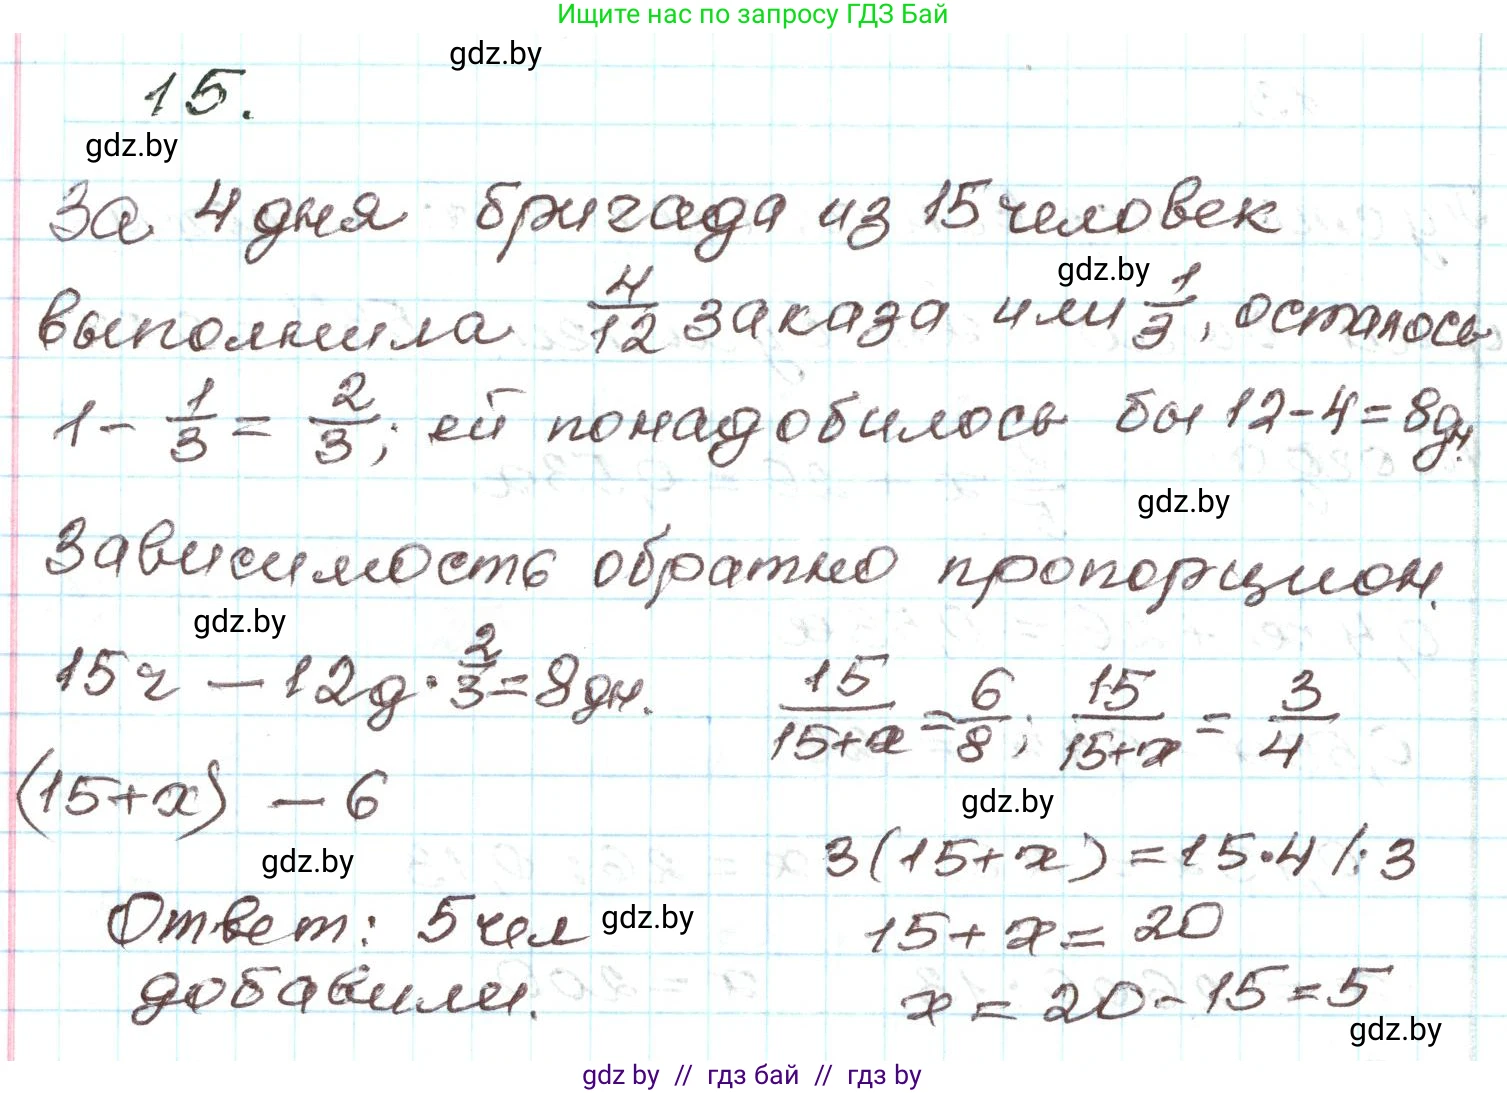 Ищите нас по запросу ГДЗ Бай
gdz.by
15.
gdz.by
За 4 дня бригада из 15 человек
gdz.by
выполнила 4/12 заказа или 1/3, осталось
1 - 1/3 = 2/3; ей понадобилось бы 12-4=8дн.
gdz.by
Зависимость обратно пропорцион.
gdz.by
15ч — 12д · 2/3 = 8дн.
15/(15+x) = 6/8; 15/(15+x) = 3/4
(15+x) — 6
gdz.by
gdz.by
3(15+x) = 15·4 /:3
Ответ: 5чел
gdz.by
15+x = 20
добавили.
x = 20-15=5
gdz.by
gdz by // гдз бай // гдз by